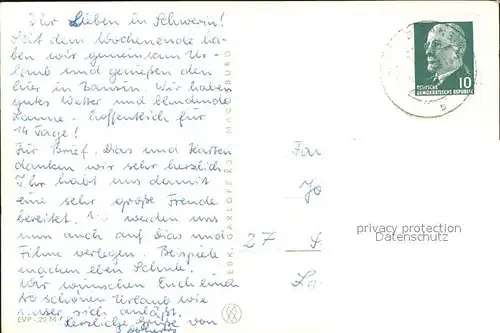 Ihr Lieben in Schwerin!
Seit dem Wochenende ha-
ben wir gemeinsam Ur-
laub und genießen den
hier in Bansin. Wir haben
gutes Wetter und blendende
Laune – hoffentlich für
14 Tage!
Für Brief, Dias und Karten
danken wir sehr herzlich.
Ihr habt uns damit
eine sehr große Freude
bereitet. werden uns
nun auch auf Dias und
Filme verlegen. Beispiele
machen eben Schule.
Wir wünschen Euch einen
so schönen Urlaub wie
unser sich anläßt.
Herzliche Grüße von
EVP -,20 M
GEBR. GARLOFF KG MAGDEBURG
10
DEUTSCHE
DEMOKRATISCHE REPUBLIK
Fa
Jo
27
La
privacy protection
Datenschutz